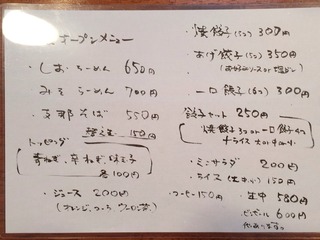 オープンメニュー
・しおらーめん 650円
みそらーめん 700円
・支那そば 550円
替え玉 150円
トッピング
青ねぎ、辛ねぎ、味玉子
各100円
・ジュース 200円
(オレンジ、コーラ、ウーロン茶)
・焼餃子(5コ) 300円
・あげ餃子(5コ) 350円
・一口餃子(6コ) 300円
餃子セット 250円
焼餃子3コor一口餃子4コ
ライス 大or中or小
・ミニサラダ 200円
・ライス(大中小) 150円
・コーヒー 150円
・生中 580円
ビンビール 600円
他あります。